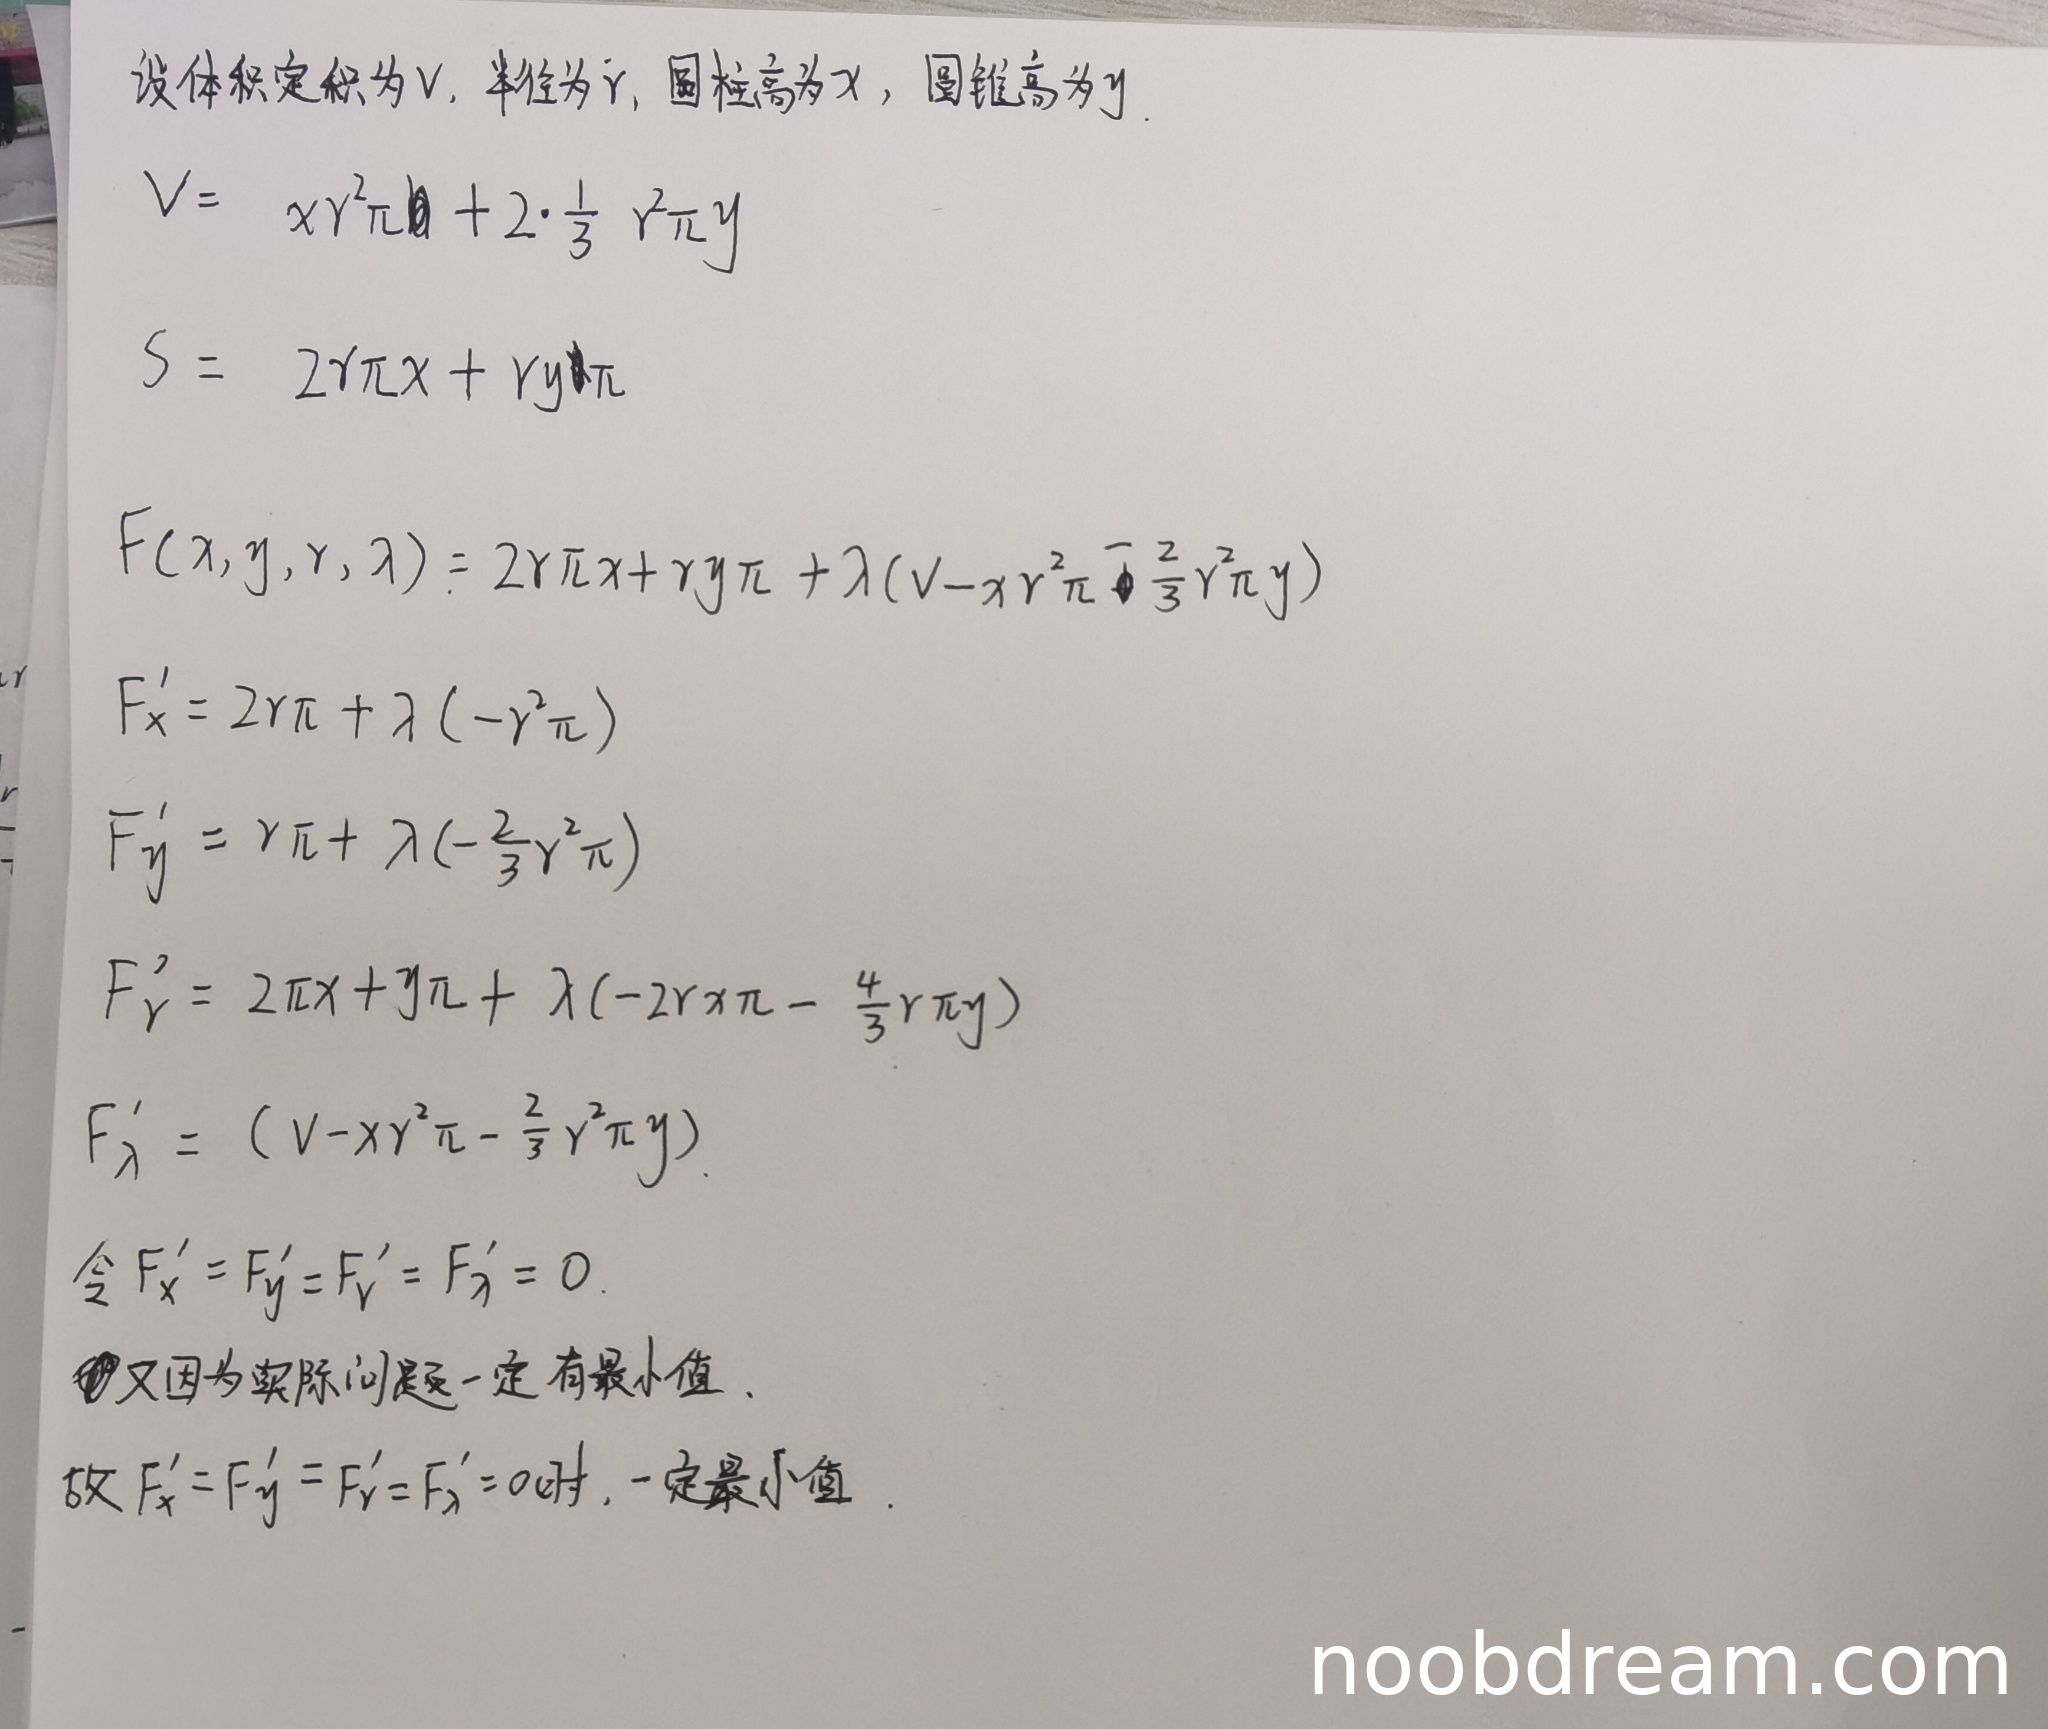 设体积定积为V, 半径为r, 圆柱高为x, 圆锥高为y.
V= xr²π + 2·1/3 r²πy
S = 2rπx + ryπ
F(x,y,r,λ) = 2rπx+ryπ +λ(V-xr²π - 2/3 r²πy)
F'x = 2rπ + λ(-r²π)
F'y = rπ + λ(-2/3 r²π)
F'r = 2πx+yπ+ λ(-2rxπ - 4/3 rπy)
F'λ = (V-xr²π- 2/3 r²πy).
令F'x = F'y = F'r = F'λ = 0.
又因为实际问题一定有最小值.
故F'x = F'y = F'r = F'λ =0时, 一定最小值.
noobdream.com